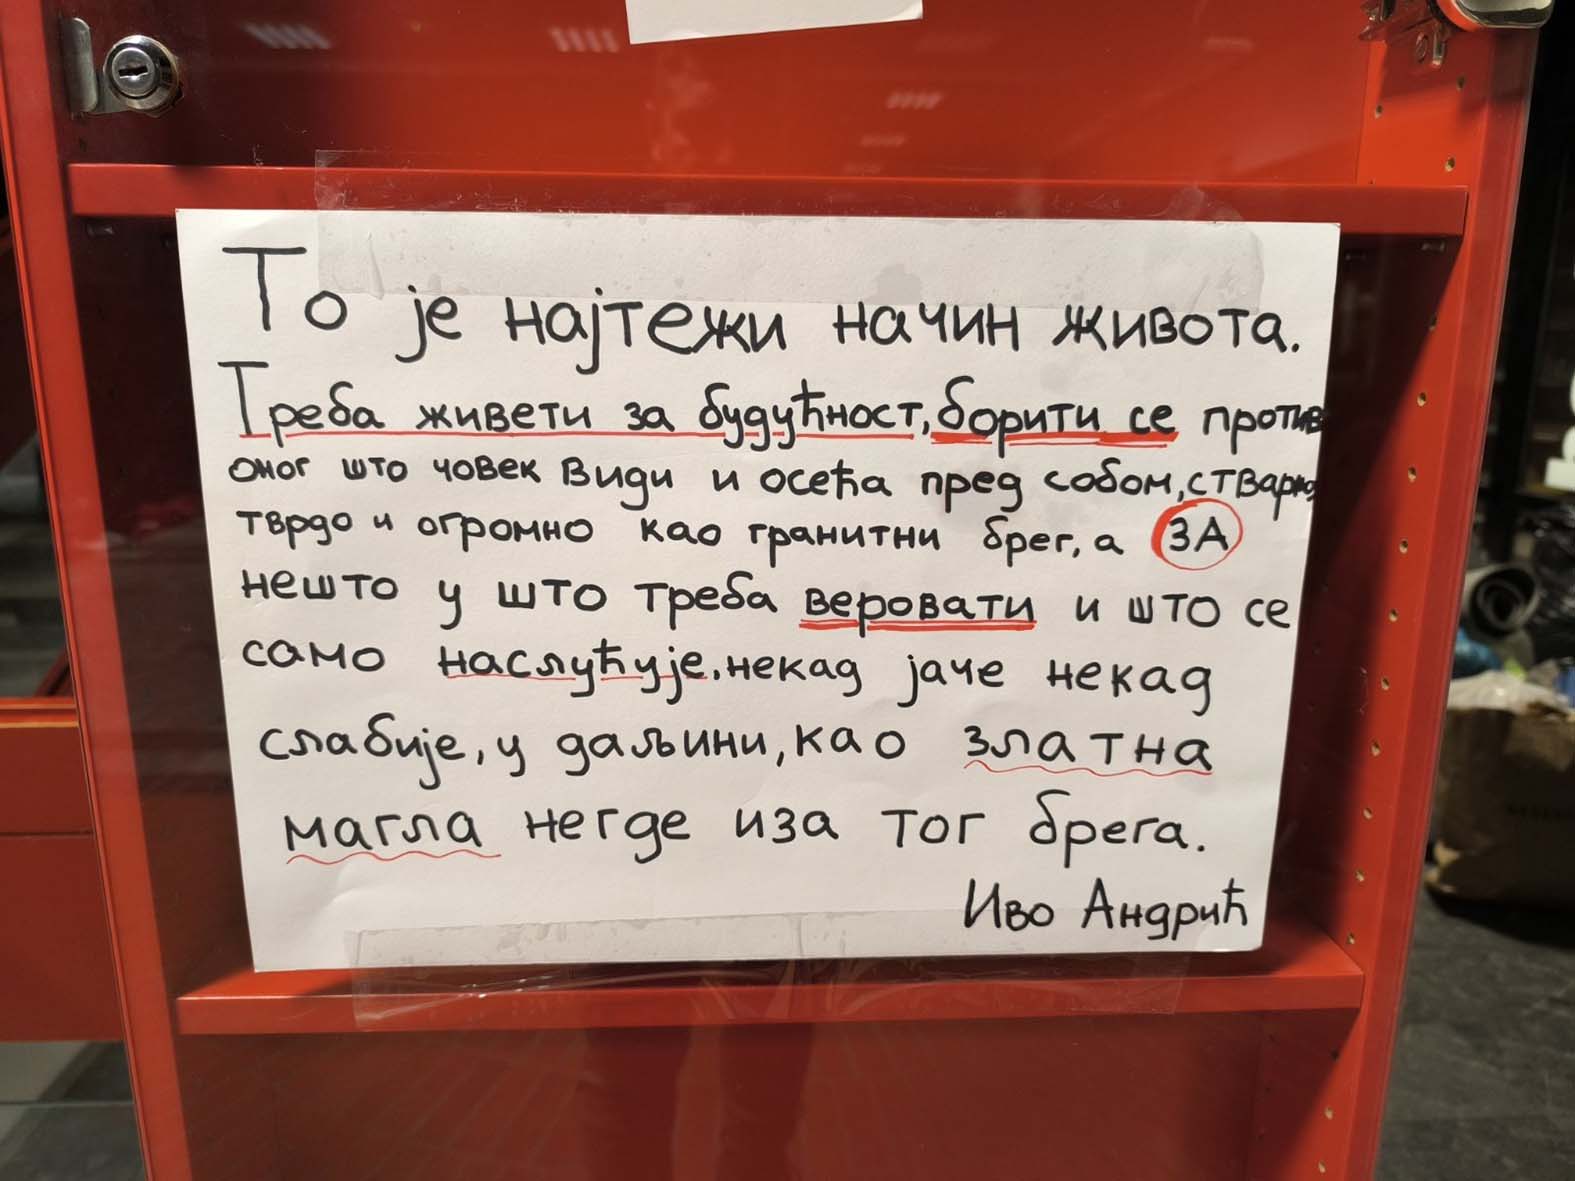 То је најтежи начин живота.
Треба живети за будућност, борити се против
оног што човек види и осећа пред собом, стварно
тврдо и огромно као гранитни брег, а ЗА
нешто у што треба веровати и што се
само наслућује, некад јаче некад
слабије, у даљини, као златна
магла негде иза тог брега.
Иво Андрић